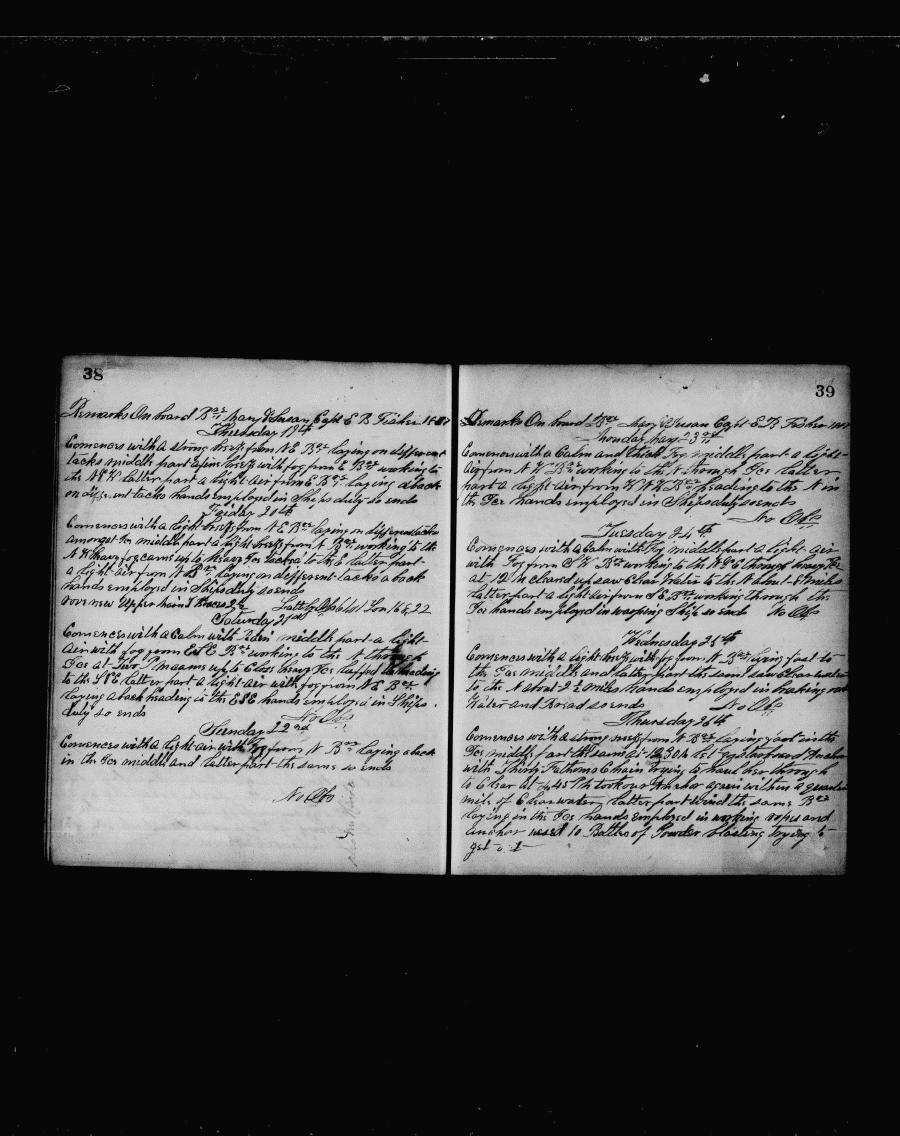 38
Remarks On board Bar Mary & Susan Capt E B Fisher 1887
Thursday 19th
Comences with a strong breeze from N E Bar laying on different
tacks middle part a fine breeze with fog from E Bar working to
the N & W latter part a light air from E Bar laying aback
on different tacks hands employed in Ships duty so ends
Friday 20th
Comences with a light breeze from N E Bar laying on different tacks
amongst Ice middle part a light breeze from N Bar working to the
N W heavy fog came up to heavy Ice tacked to the E latter part
a light air from N Bar laying on different tacks aback
hands employed in Ships duty so ends
Rove new Upper main T Braces 2½ Latt by Obs 61 01 Lon
Saturday 21st
Comences with a Calm with middle part a light
Air with fog from E Bar working to the N through
Ice at Two P M came up to Close heavy Ice luffed to heading
to the S & E latter part a light air with fog from N E Bar
laying aback heading to the E S E hands employed in Ships
duty so ends No Obs
Sunday 22nd
Comences with a light air with Fog from N Bar laying aback
in the Ice middle and latter part the same so ends
No Obs
39
Remarks On board Bar Mary & Susan Capt E B Fisher 1887
Monday May 23rd
Comences with a Calm and thick Fog middle part a light
Air from N W Bar working to the N through Ice latter
part a light air from W N W Bar heading to the N in
the Ice hands employed in Ships duty so ends
No Obs
Tuesday 24th
Comences with a Calm with Fog middle part a light air
with Fog from S W Bar working to the N & E through heavy Ice
at 12 M cleared up saw Clear Water to the N about 8 miles
latter part a light air from S E Bar working through the
Ice hands employed in warping Ship so ends No Obs
Wednesday 25th
Comences with a light breeze with fog from N Bar lying fast to
the Ice middle and latter part the same saw Clear water
to the N about 2½ miles hands employed in breaking out
Water and Bread so ends No Obs
Thursday 26th
Comences with a strong breeze from N Bar laying fast in the
Ice middle part the same at 12 30 h let go Starboard Anchor
with Thirty Fathoms Chain trying to haul her through
to Clear at 4 45 Ph took our Anchor again within a quarter
mile of Clear water latter part wind the same Bar
laying in the Ice hands employed in working ropes and
anchor used 10 Bottles of Powder blasting trying to
get out